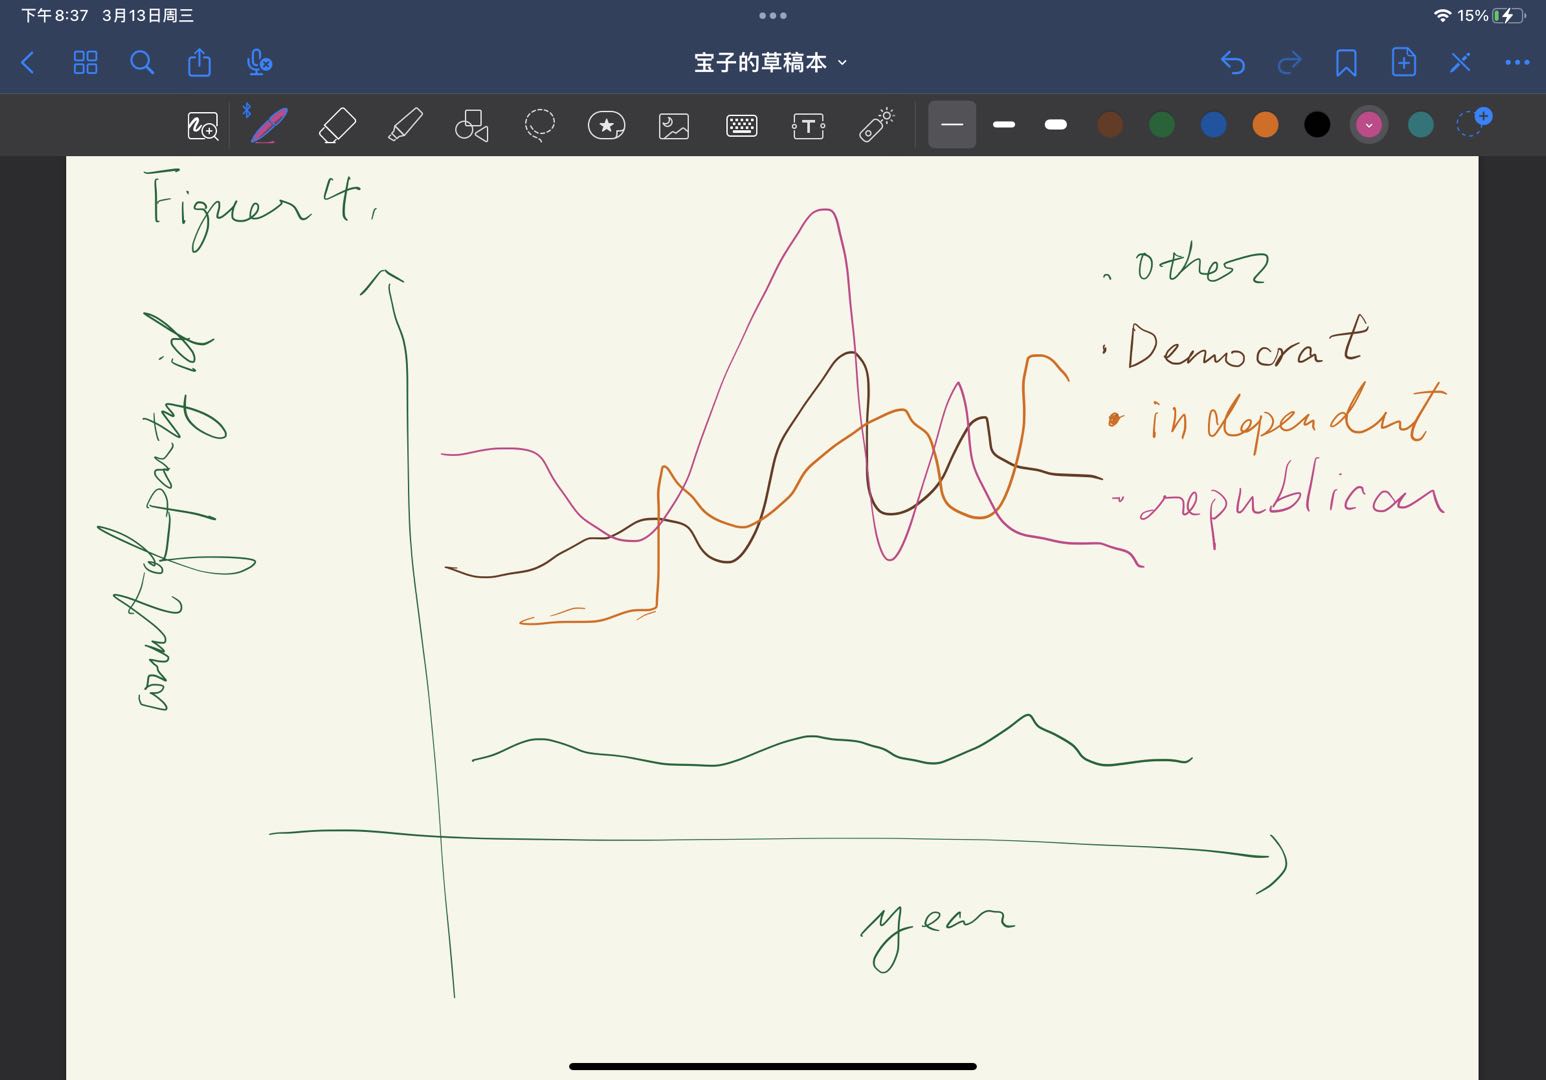 下午8:37 3月13日周三
15%
宝子的草稿本
T
Figuer 4.
count of party id
other
Democrat
independent
republican
year